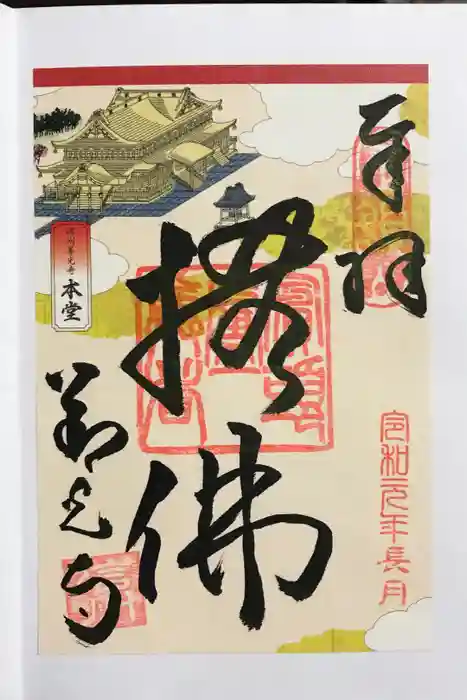 奉拝
令和元年長月
撫佛
善光寺
信州善光寺
本堂